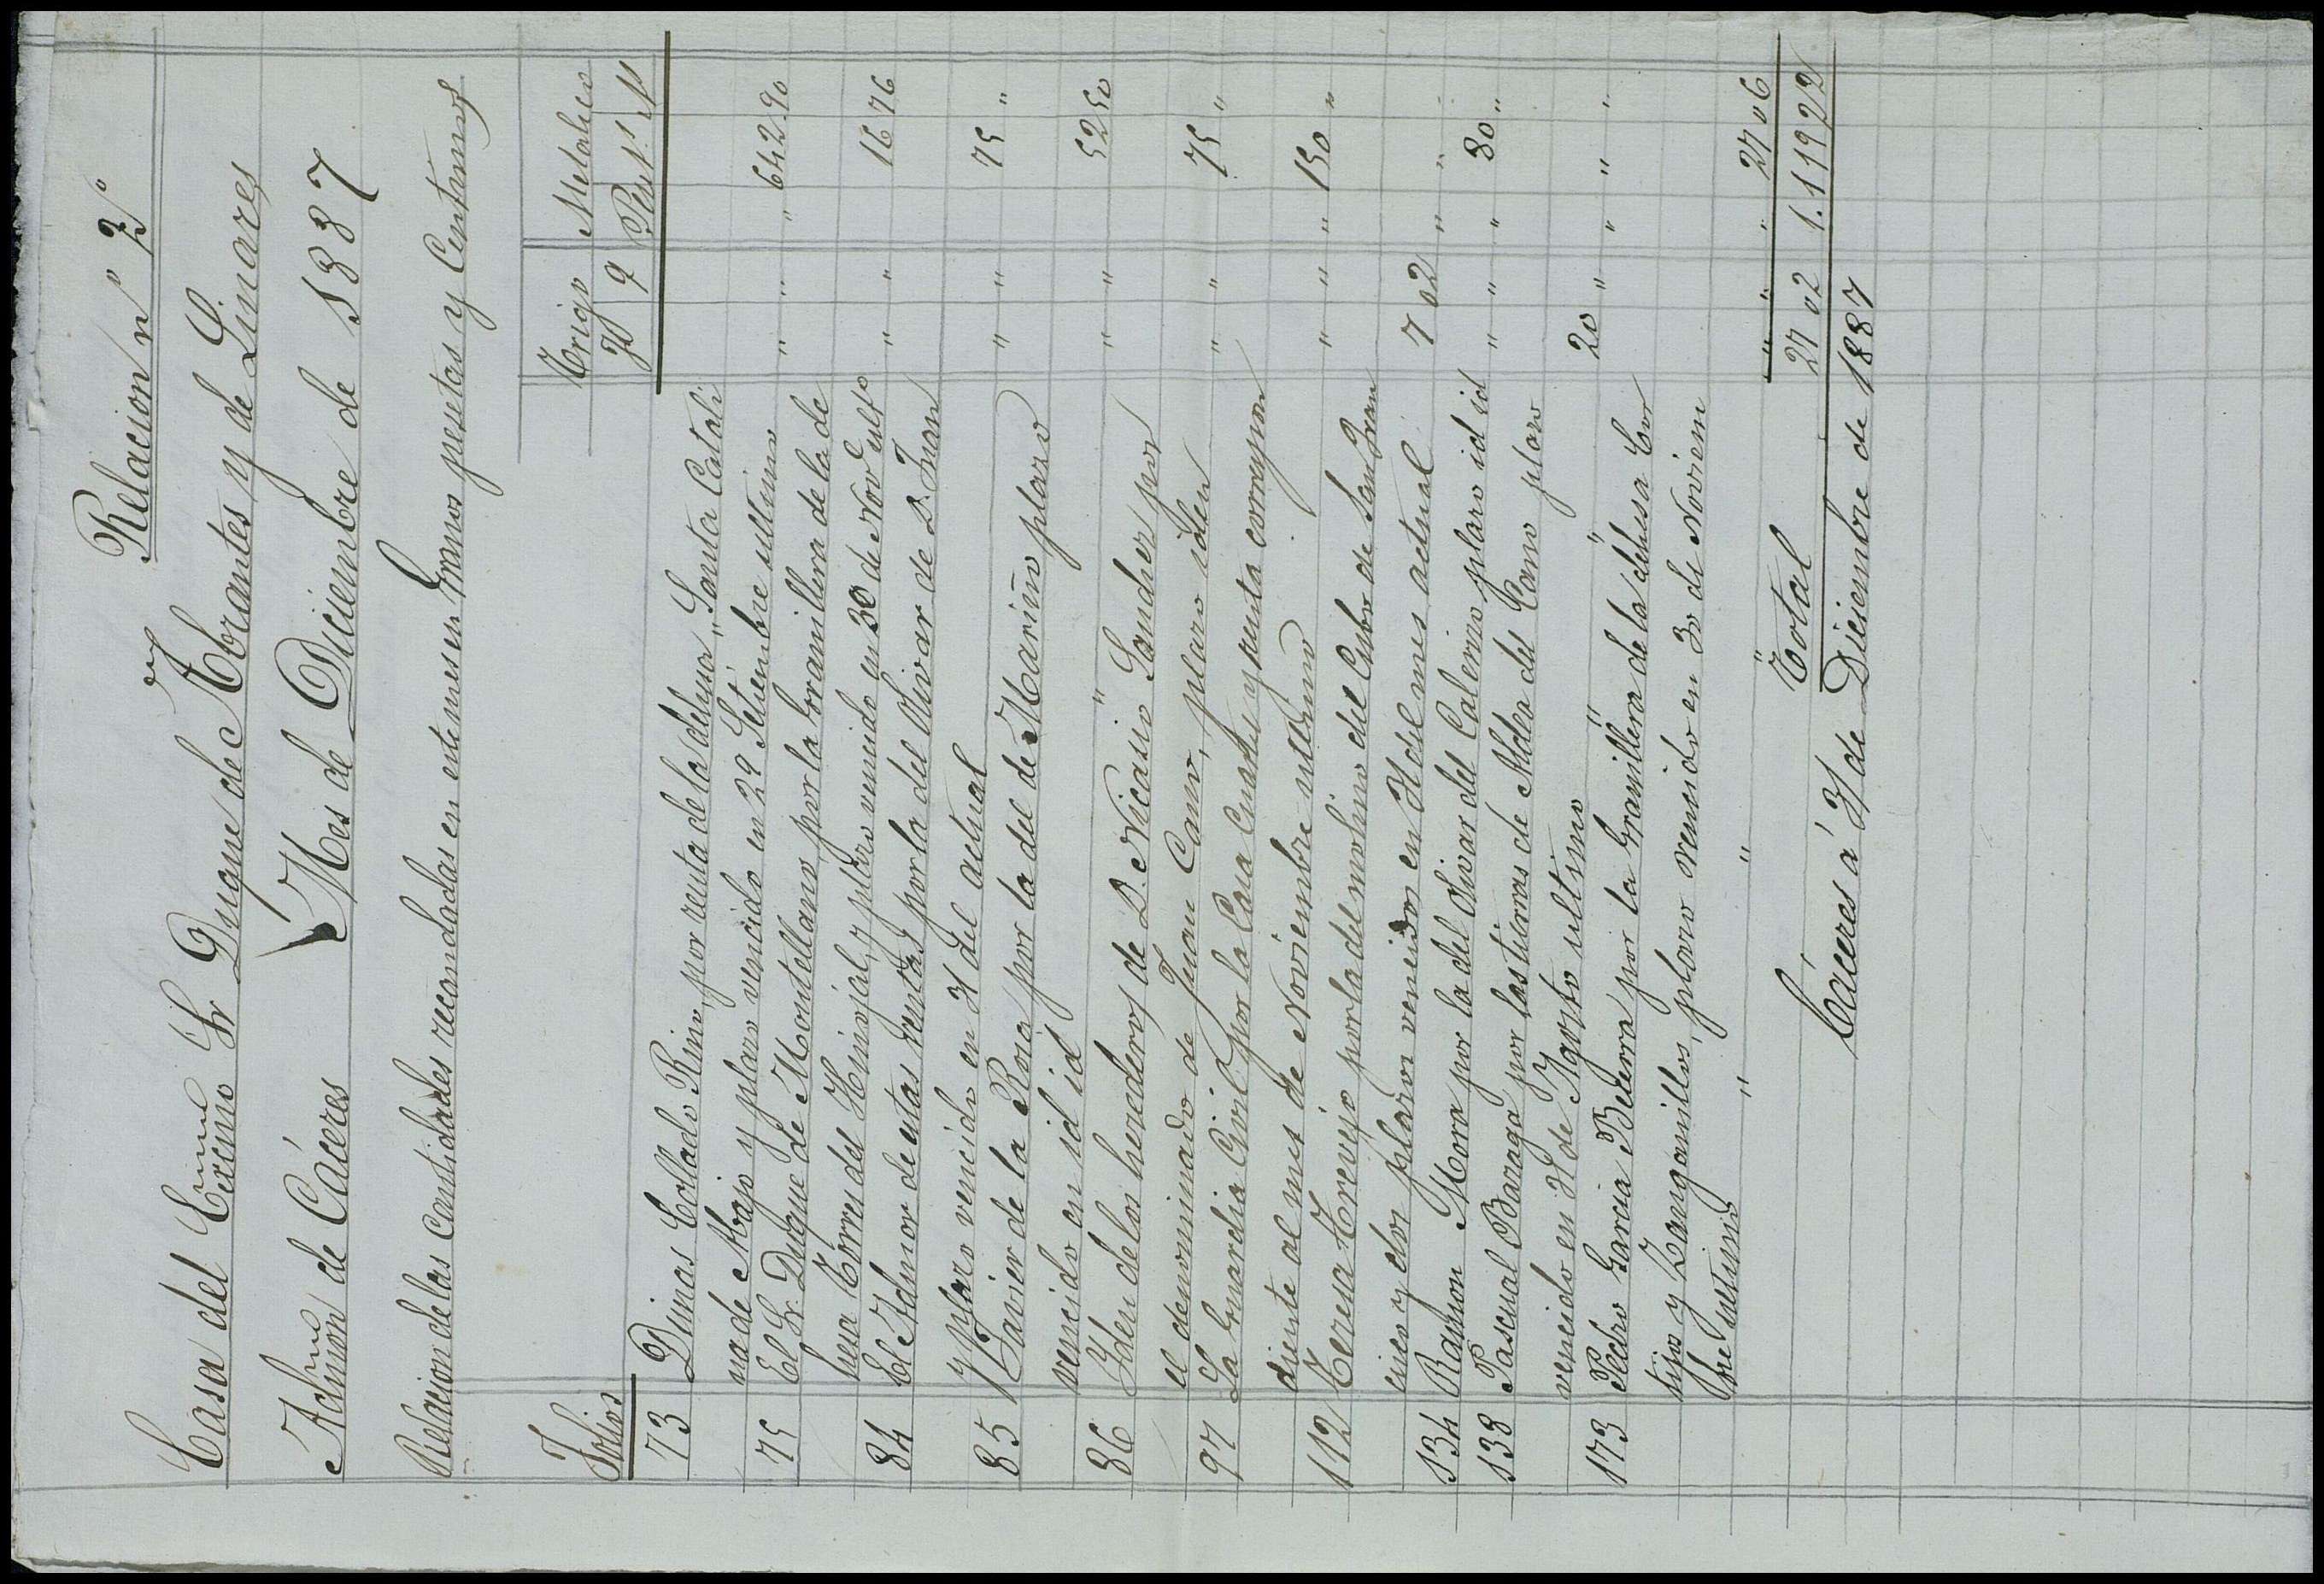 Relacion nº 2º
Casa del Excmo Sr Duque de Abrantes y de Linares
Admon de Cáceres Mes de Diciembre de 1887
Relacion de las cantidades recaudadas en este mes en Granos pesetas y Centimos
Folios Trigo Metalico
F q Peset.s
73 Dimas Collado Rino, por renta de la dehesa, Santa Catali
na de Abajo y plazo vencido en 29 Setiembre ultimo " " " 642 90
75 El Sr. Duque de Montellano, por la bramillera de la de
hesa Torre del Hinojal, y plazo vencido en 30 de Nove ulto " " 16 76
84 El Admor de estas rentas por la del Olivar de D. Juan
y plazo vencido en 31 del actual " " 75 "
85 Xavier de la Rosa por la del de Mariño plazo
vencido en id id " " 52 50
86 Yden de los herederos de D. Nicasio Sanchez por
el denominado de Juan Cano, plazo iden " " 75 "
97 La Guardia Civil por la Casa Cuartel y renta correspon
diente al mes de Noviembre ultimo " " " 150 "
112 Teresa Trevejo por la del molino del Cubo de San Fran
cisco y dos plazos vencidos en 31 del mes actual 7 02 " " "
134 Ramon Mora por la del Olivar del Calerizo plazo id id " " " 80 "
138 Pascual Baraga por las tierras de Aldea del Cano plazo
vencido en 31 de Agosto ultimo " 20 " " " "
173 Pedro Garcia Becerra por la Gramillera de la dehesa Cor
tijo y Zanganillos, plazo vencido en 30 de Noviem
bre ultimo " " " " " " 27 06
Total 27 02 1.119 22
Cáceres á 31 de Diciembre de 1887